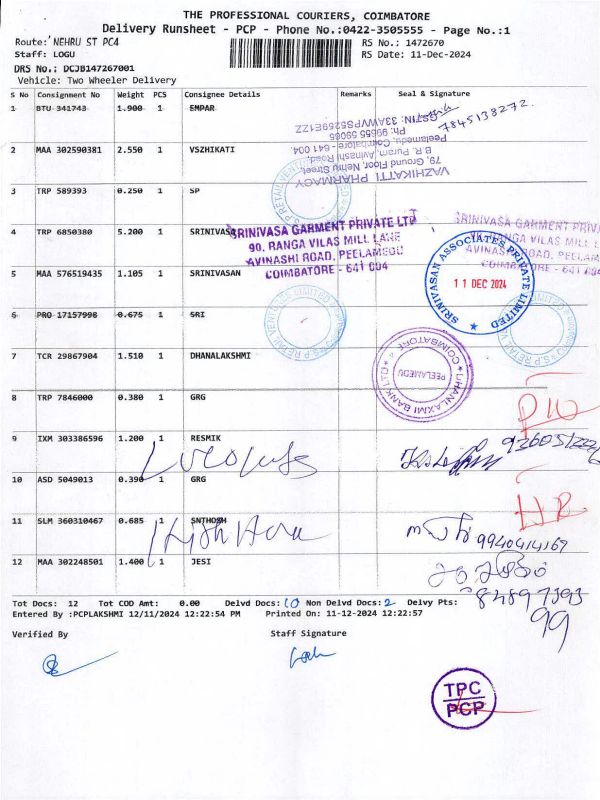 THE PROFESSIONAL COURIERS, COIMBATORE
Delivery Runsheet - PCP - Phone No.:0422-3505555 - Page No.:1
Route: NEHRU ST PC4
RS No.: 1472670
Staff: LOGU
RS Date: 11-Dec-2024
DRS No.: DCJB147267001
Vehicle: Two Wheeler Delivery
S No Consignment No Weight PCS Consignee Details Remarks Seal & Signature
1 BTU 341743 1.900 1 EMPAR
7845138272.
2 MAA 302590381 2.550 1 VSZHIKATI
VAZHIKATTI PHARMACY
79, Ground Floor, Nehru Street,
B.R. Puram, Avinashi Road,
Peelamedu, Coimbatore - 641 004.
Ph: 99655 59065
GSTIN: 33AWVPS5259E1ZZ
3 TRP 589393 0.250 1 SP
4 TRP 6850380 5.200 1 SRINIVASA
SRINIVASA GARMENT PRIVATE LTD
90, RANGA VILAS MILL LANE
AVINASHI ROAD, PEELAMEDU
COIMBATORE - 641 004
5 MAA 576519435 1.105 1 SRINIVASAN
SRINIVASAN ASSOCIATES PRIVATE LIMITED
11 DEC 2024
6 PRO 17157998 0.675 1 SRI
7 TCR 29867904 1.510 1 DHANALAKSHMI
PEELAMEDU
COIMBATORE
8 TRP 7846000 0.380 1 GRG
9 IXM 303386596 1.200 1 RESMIK
10 ASD 5049013 0.390 1 GRG
11 SLM 360310467 0.685 1 SNTHOSH
9940414169
12 MAA 302248501 1.400 1 JESI
Tot Docs: 12 Tot COD Amt: 0.00 Delvd Docs: 10 Non Delvd Docs: 2 Delvy Pts:
99
Entered By :PCPLAKSHMI 12/11/2024 12:22:54 PM Printed On: 11-12-2024 12:22:57
Verified By Staff Signature
TPC
PCP